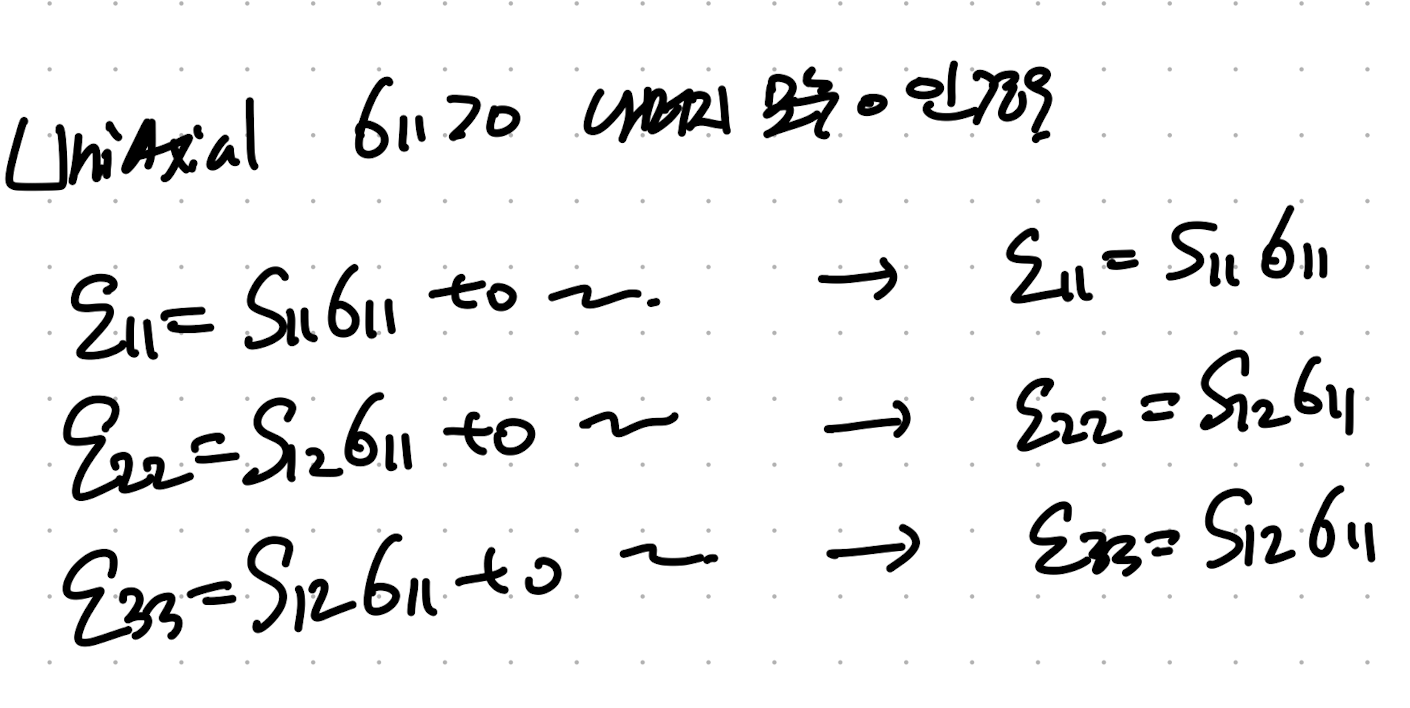 UniAxial σ11>0 나머지 모두 0 인경우
ε11 = S11σ11 +0 ~. → ε11 = S11σ11
ε22 = S12σ11 +0 ~ → ε22 = S12σ11
ε33 = S12σ11 +0 ~ → ε33 = S12σ11